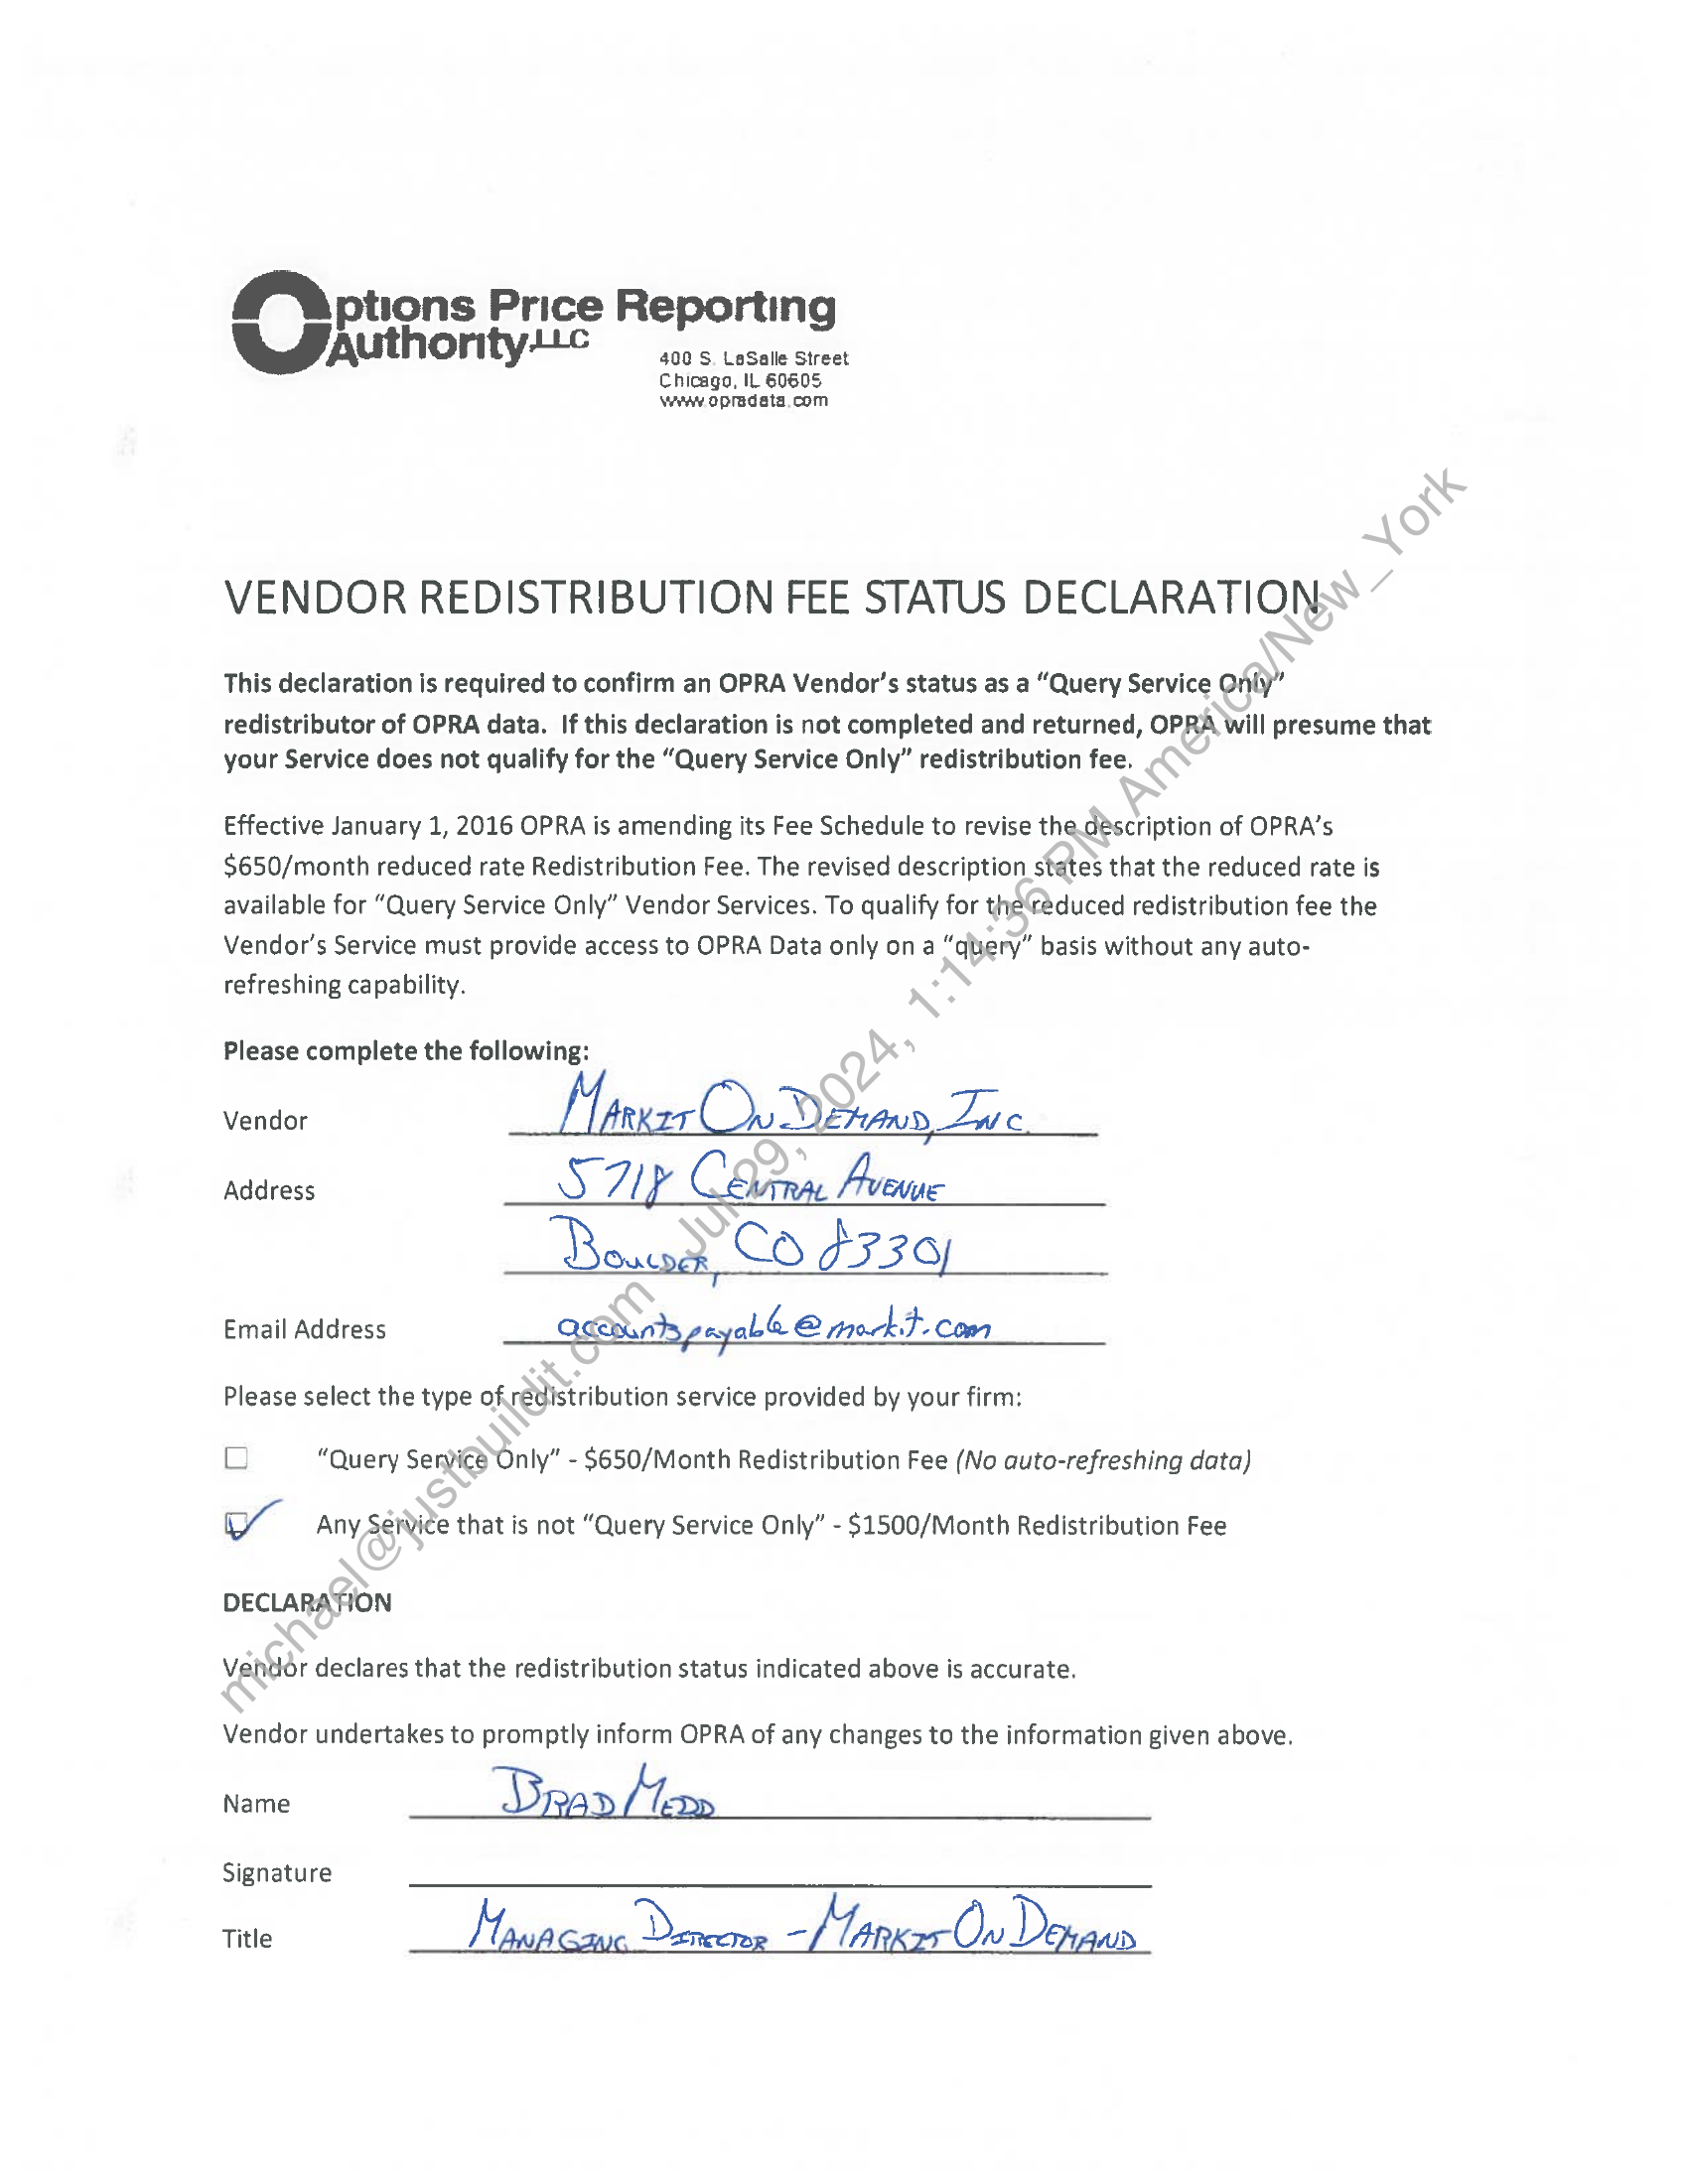 Options Price Reporting
Authority, LLC
400 S. LaSalle Street
Chicago, IL 60605
www.opradata.com
VENDOR REDISTRIBUTION FEE STATUS DECLARATION
This declaration is required to confirm an OPRA Vendor's status as a "Query Service Only"
redistributor of OPRA data. If this declaration is not completed and returned, OPRA will presume that
your Service does not qualify for the "Query Service Only" redistribution fee.
Effective January 1, 2016 OPRA is amending its Fee Schedule to revise the description of OPRA's
$650/month reduced rate Redistribution Fee. The revised description states that the reduced rate is
available for "Query Service Only" Vendor Services. To qualify for the reduced redistribution fee the
Vendor's Service must provide access to OPRA Data only on a "query" basis without any auto-
refreshing capability.
Please complete the following:
Vendor MARKIT ON DEMAND, INC.
Address 5718 CENTRAL AVENUE
BOULDER, CO 83301
Email Address accountspayable@markit.com
Please select the type of redistribution service provided by your firm:
"Query Service Only" - $650/Month Redistribution Fee (No auto-refreshing data)
Any Service that is not "Query Service Only" - $1500/Month Redistribution Fee
DECLARATION
Vendor declares that the redistribution status indicated above is accurate.
Vendor undertakes to promptly inform OPRA of any changes to the information given above.
Name BRAD MEDD
Signature
Title MANAGING DIRECTOR - MARKIT ON DEMAND
michael@justbuildit.com Jul 29, 2024, 1:14:36 PM America/New_York